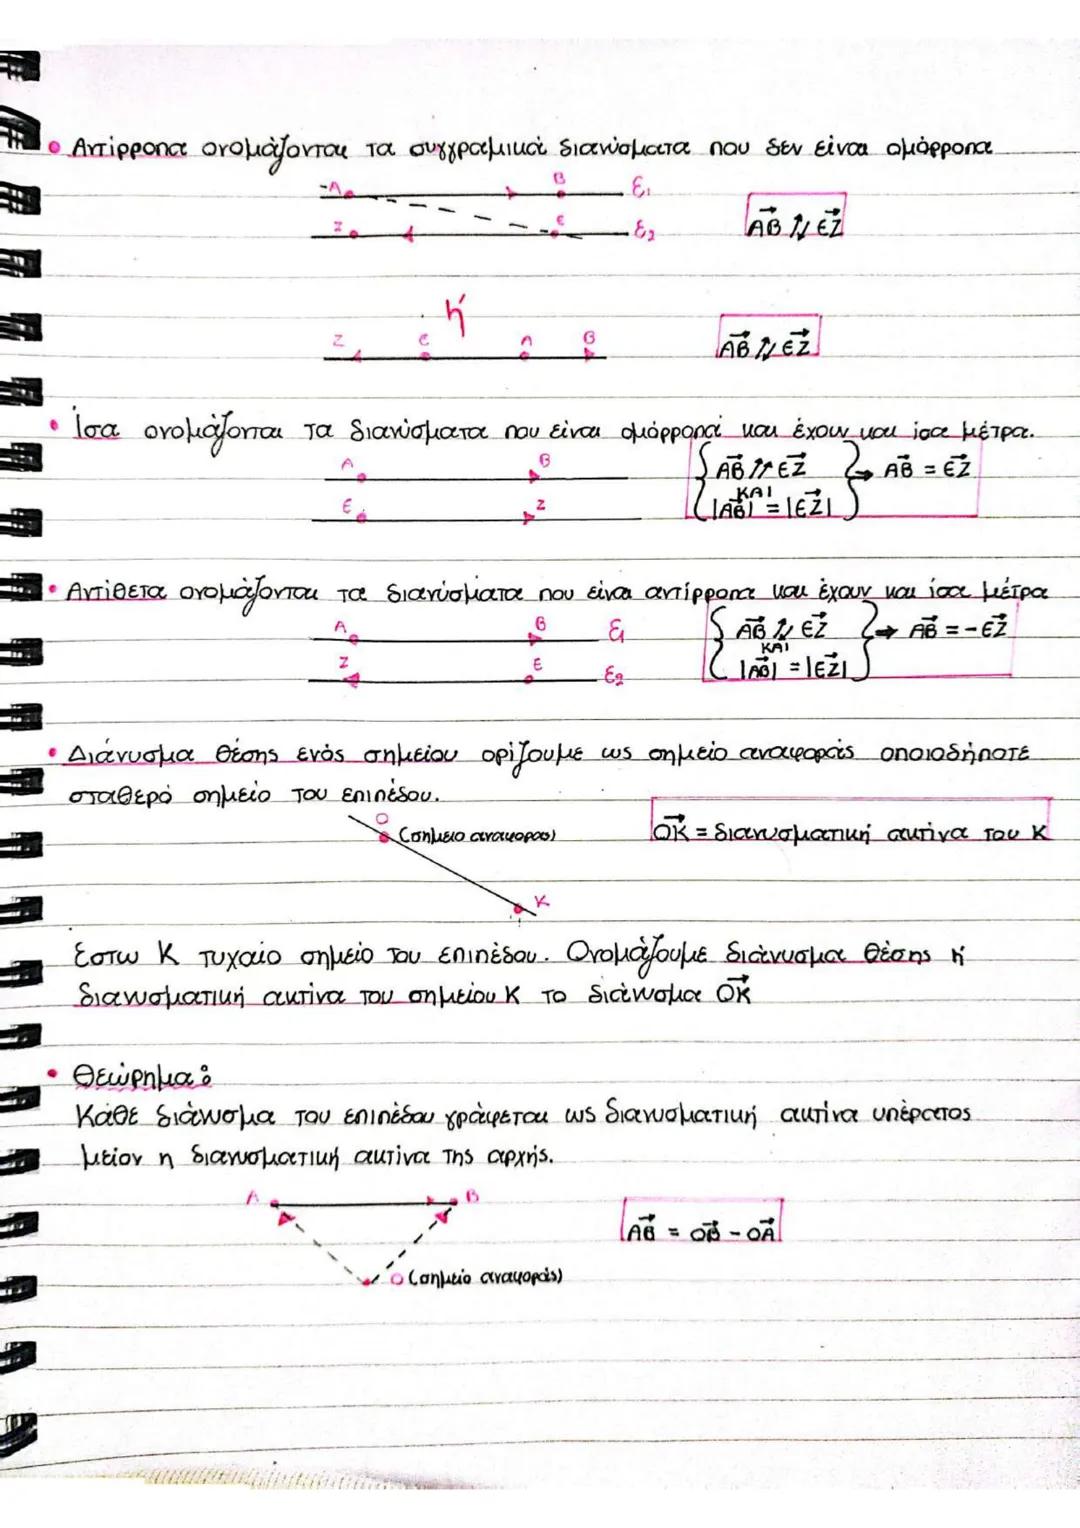 • Αντίρροπα ονομάζονται τα συγγραμικά διανύσματα που δεν είναι ομόρροπα
-Α Β ε₁
Ζ Ε ε₂
ΑΒ⃗ ↑↓ ΕΖ⃗
ή
Ζ Ε Α Β
ΑΒ⃗ ↑↓ ΕΖ⃗
• Ίσα ονομάζονται τα διανύσματα που είναι ομόρροπά και έχουν και ίσα μέτρα.
Α Β
Ε Ζ
{ ΑΒ⃗ ↑↑ ΕΖ⃗ ΚΑΙ |ΑΒ⃗| = |ΕΖ⃗| } → ΑΒ⃗ = ΕΖ⃗
• Αντίθετα ονομάζονται τα διανύσματα που είναι αντίρροπα και έχουν και ίσα μέτρα
Α Β ε₁
Ζ Ε ε₂
{ ΑΒ⃗ ↑↓ ΕΖ⃗ ΚΑΙ |ΑΒ⃗| = |ΕΖ⃗| } → ΑΒ⃗ = -ΕΖ⃗
• Διάνυσμα θέσης ενός σημείου ορίζουμε ως σημείο αναφοράς οποιοδήποτε
σταθερό σημείο του επιπέδου.
Ο (σημειο αναφορας)
Κ
ΟΚ⃗ = διανυσματική ακτίνα του Κ
Έστω Κ τυχαίο σημείο του επιπέδου. Ονομάζουμε διάνυσμα θέσης ή
διανυσματική ακτίνα του σημείου Κ το διάνυσμα ΟΚ⃗
• Θεώρημα:
Κάθε διάνυσμα του επιπέδου γράφεται ως διανυσματική ακτίνα υπέρατος
μείον η διανυσματική ακτίνα της αρχής.
Α Β
Ο (σημείο αναφοράς)
ΑΒ⃗ = ΟΒ⃗ - ΟΑ⃗